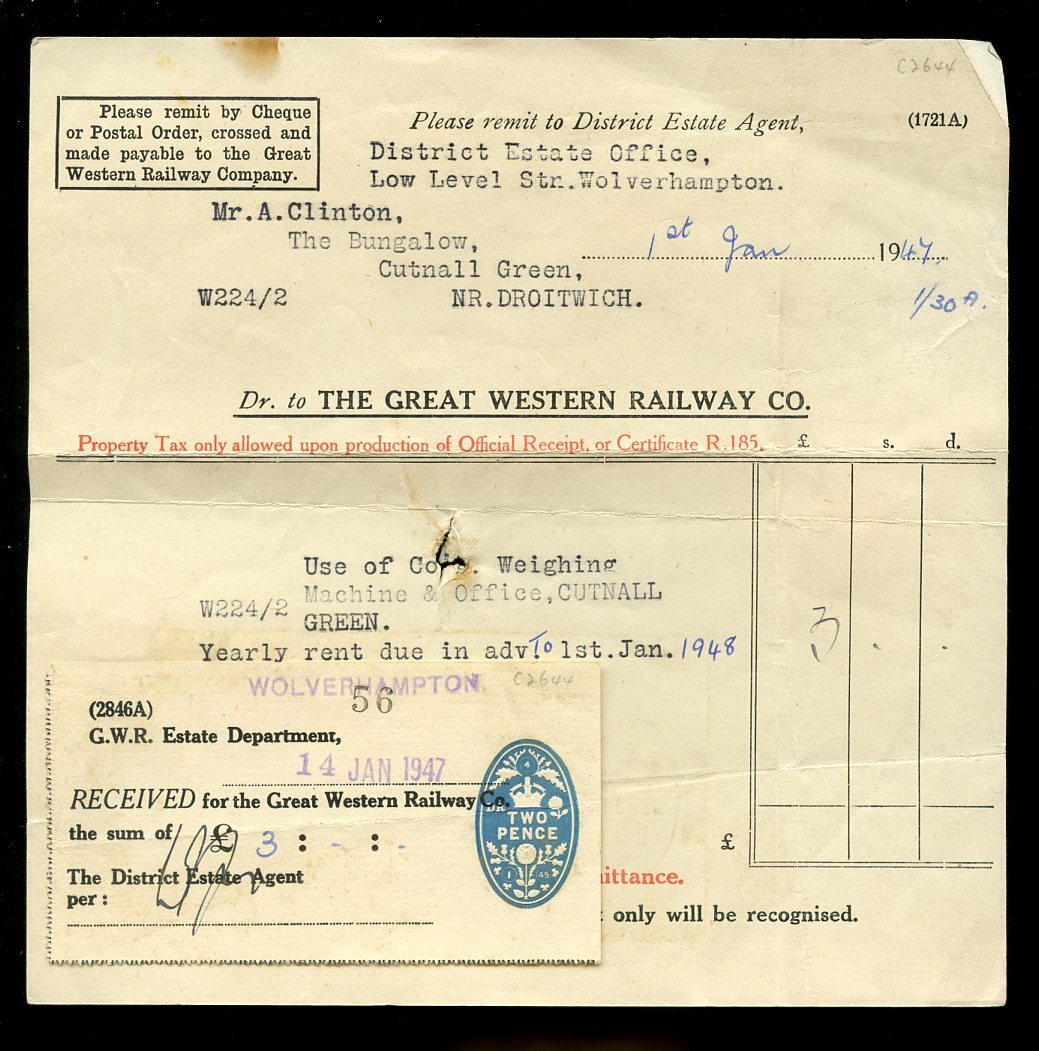 C2644
Please remit by Cheque
or Postal Order, crossed and
made payable to the Great
Western Railway Company.
Please remit to District Estate Agent,
(1721A)
District Estate Office,
Low Level Stn.Wolverhampton.
Mr.A.Clinton,
The Bungalow,
1st Jan 1947.
Cutnall Green,
W224/2 NR.DROITWICH.
1/30 A.
Dr. to THE GREAT WESTERN RAILWAY CO.
Property Tax only allowed upon production of Official Receipt, or Certificate R.185. £ s. d.
Use of Co's. Weighing
Machine & Office,CUTNALL
W224/2
GREEN.
3 . .
Yearly rent due in adv. To 1st.Jan.1948
WOLVERHAMPTON
C2644
56
(2846A)
G.W.R. Estate Department,
14 JAN 1947
RECEIVED for the Great Western Railway Co.
the sum of £ 3 : - : -
The District Estate Agent
per :
4
DR
TWO
PENCE
1 45
£
ittance.
only will be recognised.